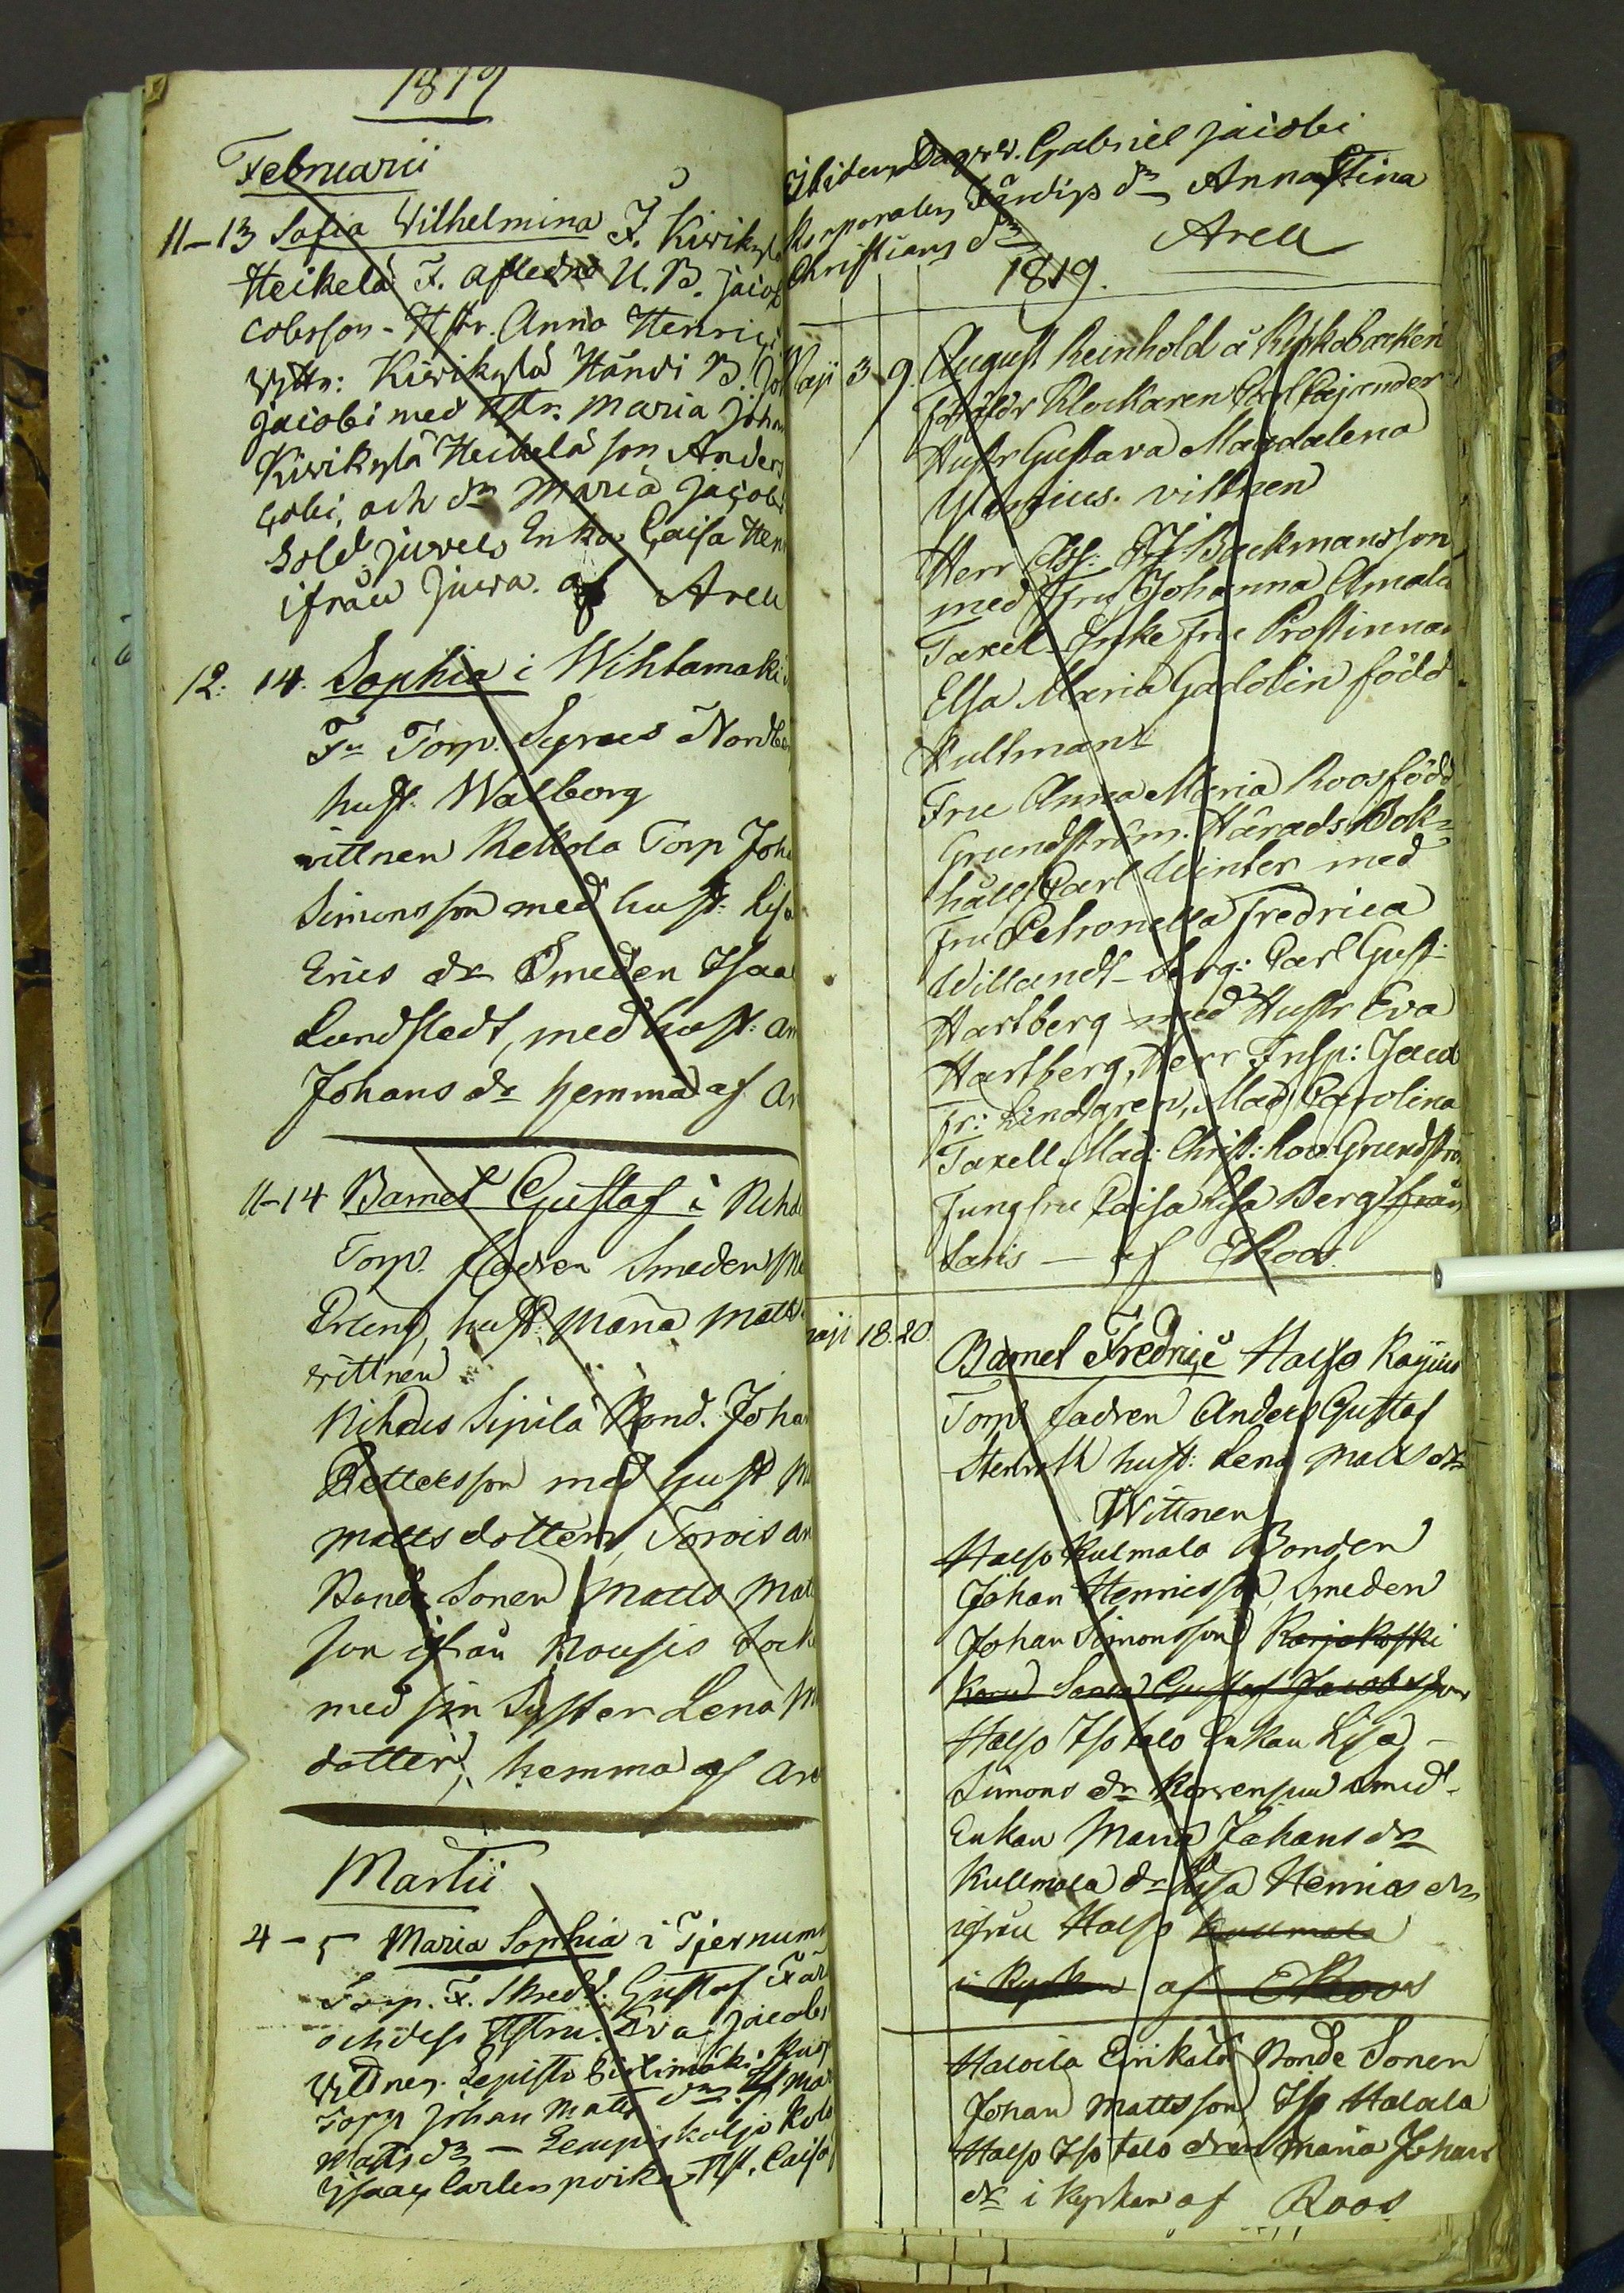 1819
Februarii
11-13 Sofia Wilhelmina F. Kiwikylä
Heikelä F. afledne U. B. Jacob
cobsson - Hstr. Anna Henrici
Vittn: Kiwikylä Händi B. Joh
Jacobi med Hstr. Maria Johan
Kiwikylä Heikelä son Anders
cobi, och dr Maria Jacobs
Sold. Juvels Enka Caisa Hen
ifrån Juva. af Arell
12. 14. Sophia i Wihlamaki
Fr Torp. Syrus Nordb
hust. Walborg
vittnen Kellola Torp Joh
Simonsson med hust: Lisa
Erics dr Smeden Isaa
Lundstedt, med hust: An
Johans dr hemma af Ar
11-14 Barnet Gustaf i Nih
Torp. fadren Smeden M
Erlund, hust: Maria Matts
vittnen
Nihdis Sipilä Bond. Joha
Pettersson med hust M
Matts dotter, Torois an
Bonde Sonen Matts Mat
son ifrån Nousis Sock
med sin Syster Lena M
dotter, hemma af Are
Martii
4-5 Maria Sophia i Tjernum
Torp. F. Skredd. Gustaf Fär
och dess Hstru. Eva Jacobs
Vittnen. Lepistö
Torpr Johan Matts Mar
Matts dr -
Isaac Carlen poika Hst. Caisa
Ibidem Dagsv. Gabriel Jacobi
Korporalen Färdigs dr Anna Stina
Christians dr Arell
1819.
Maji 3 9. August Reinhold å Kyrkobacken
föräldr Klockaren Carl Cajander
Hustr Gustava Magdalena
Ylenius. vittnen
Herr Ass: Backmansson
med Fru Johanna Amalia
Taxel. Enke Fru Prostinnan
Elsa Maria Gadolin född
Kullman
Fru Anna Maria Roos född
Grundström. Härads Bok=
håll Carl Winter med
Fru Petronella Fredrica
Willandt - Serg: Carl Gust:
Hartberg med Hustr Eva
Hartberg, Herr Insp: Jacob
Fr: Lindgren, Mad Carolina
Taxell Mad: Christ: Lov: Grundström
Jungfru Caisa Lisa Berg från
Saris - af E Roos
Maji 18. 20. Barnet Fredric i Halso Kajus
Torp fadren Anders Gustaf
Stenroth hust: Lena Matts dr
Wittnen
Halso Kulmala Bonden
Johan Henricsson, Smeden
Johan Simonsson Karjakoski
Bond Sonen Gustaf Jacobsson
Halso Iso talo Enkan Lisa -
Simons dr Korvensuu Smed-
Enkan Maria Johans dr
Kullmala dr Lisa Henrics dr
ifrån Halso Kullmala
i Kyrkan af E Roos
Haloila Eerikälä Bonde Sonen
Johan Mattsson, Iso Haloila
Halso Iso talo dren Maria Johans
dr i Kyrkan af Roos